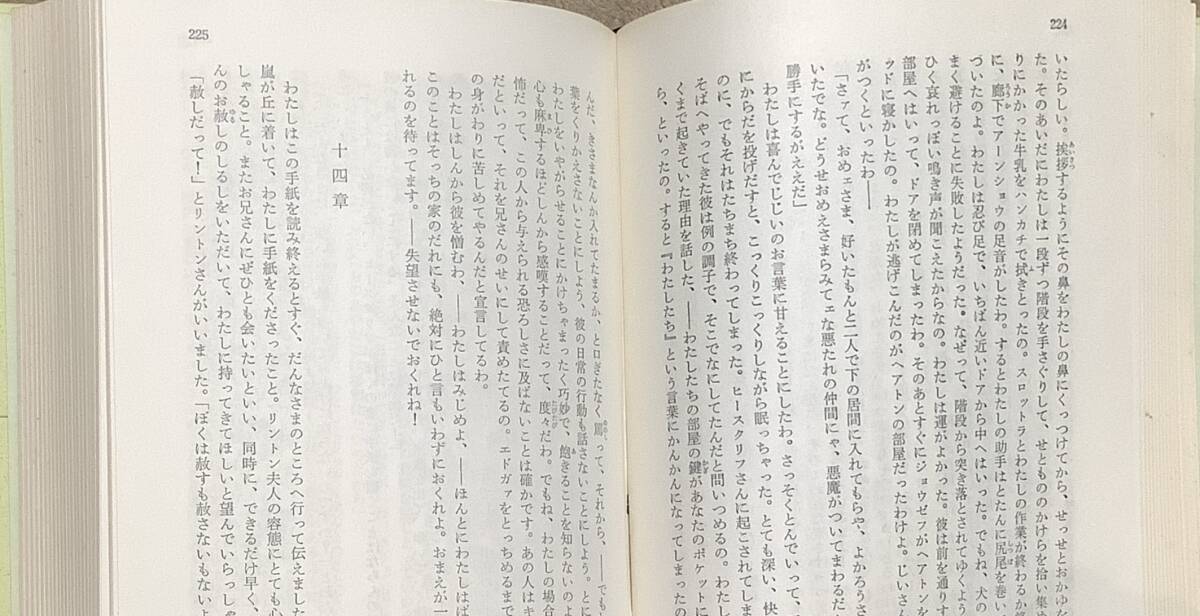 224
いたらしい。挨拶するようにその鼻をわたしの鼻にくっつけてから、せっせとおかゆん
た。そのあいだにわたしは一段ずつ階段を手さぐりして、せともののかけらを拾い集
りにかかった牛乳をハンカチで拭きとったの。スロットラとわたしの作業が終わる
に、廊下でアーンショウの足音がしたわ。するとわたしの助手はとたんに尻尾を巻い
づいたのよ。わたしは忍び足で、いちばん近いドアから中へはいった。でもね、犬の
まく避けることに失敗したようだった。なぜって、階段から突き落とされてゆくよう
ひく哀れっぽい鳴き声が聞こえたからなの。わたしは運がよかった。彼は前を通りす
部屋へはいって、ドアを閉めてしまったわ。そのあとすぐにジョウゼフがヘアトン
ッドに寝かしたの。わたしが逃げこんだのがヘアトンの部屋だったわけよ。じいさん
がつくといったわ――
「さァて、おめェさま、好いたもんと二人で下の居間に入れてもらや、よかろうさ
いたでな。どうせおめえさまらみてェな悪たれの仲間にゃ、悪魔がついてまわるだ
勝手にするがええだ」
わたしは喜んでじじいのお言葉に甘えることにしたわ。さっそくとんでいって、
にからだを投げだすと、こっくりこっくりしながら眠っちゃった。とても深い、快
のに、でもそれはたちまち終わってしまった。ヒースクリフさんに起こされてしま
そばへやってきた彼は例の調子で、そこでなにしてたんだと問いつめるの。わたし
くまで起きていた理由を話した、――わたしたちの部屋の鍵があなたのポケットに
ら、といったの。すると『わたしたち』という言葉にかんかんになってしまったの
225
んだ、きさまなんか入れてたまるか、と口ぎたなく罵って、それから、――でも
葉をくりかえさないことにしよう、彼の日常の行動も話さないことにしよう。とに
わたしをいやがらせることにかけちゃまったく巧妙で、飽きることを知らないのよ
心も麻卑するほどしんから感嘆することだって、度々だわ。でもね、わたしの場合
怖だって、この人から与えられる恐ろしさに及ばないことは確かです。あの人はキ
だといって、それを兄さんのせいにして責めたてるの。エドガァをとっちめるまで
の身がわりに苦しめてやるんだと宣言してるわ。
わたしはしんから彼を憎むわ、――わたしはみじめよ、――ほんとにわたしはば
このことはそっちの家のだれにも、絶対にひと言もいわずにおくれよ。おまえが一
れるのを待ってます。――失望させないでおくれね！
十四章
わたしはこの手紙を読み終えるとすぐ、だんなさまのところへ行って伝えました
嵐が丘に着いて、わたしに手紙をくださったこと。リントン夫人の容態にとても心
しゃること。またお兄さんにぜひとも会いたいといい、同時に、できるだけ早く、
んのお赦しのしるしをいただいて、わたしに持ってきてほしいと望んでいらっしゃ
「赦しだって！」とリントンさんがいいました。「ぼくは赦すも赦さないもないよ